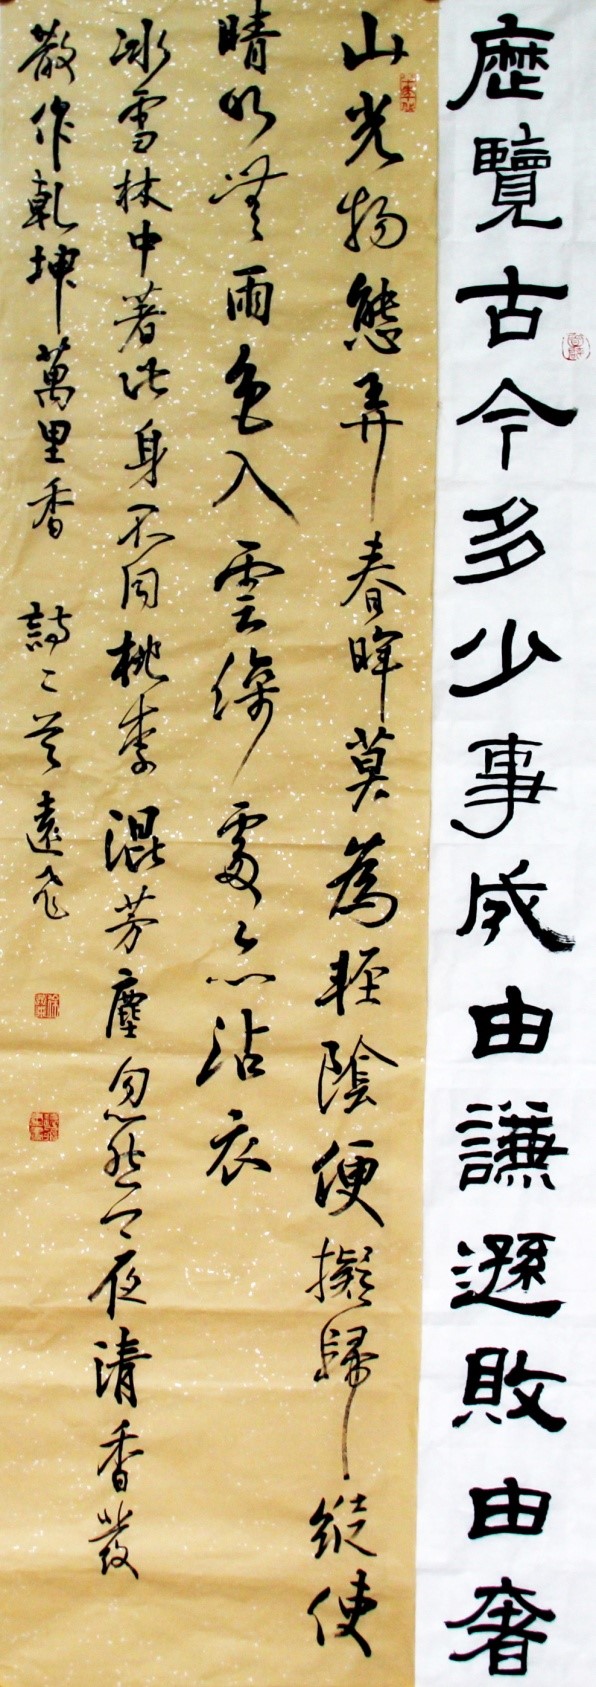 歷覽古今多少事成由謙遜敗由奢
山光物態弄春暉莫為輕陰便擬歸縱使
晴明無雨色入雲深處亦沾衣
冰雪林中著此身不同桃李混芳塵忽然一夜清香發
散作乾坤萬里香
詩二首遠飛